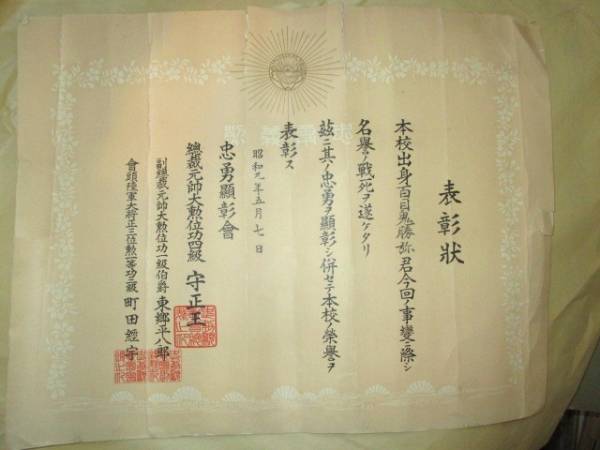 表彰状
本校出身百目鬼勝弥君今回ノ事變ニ際シ
名譽ノ戦死ヲ遂ケタリ
茲ニ其ノ忠勇ヲ顯彰シ併セテ本校ノ榮譽ヲ
表彰ス
昭和九年五月七日
忠勇顯彰會
總裁元帥大勲位功四級 守正王
副總裁元帥大勲位功一級伯爵 東郷平八郎
會頭陸軍大將正三位勲一等功二級 町田經宇